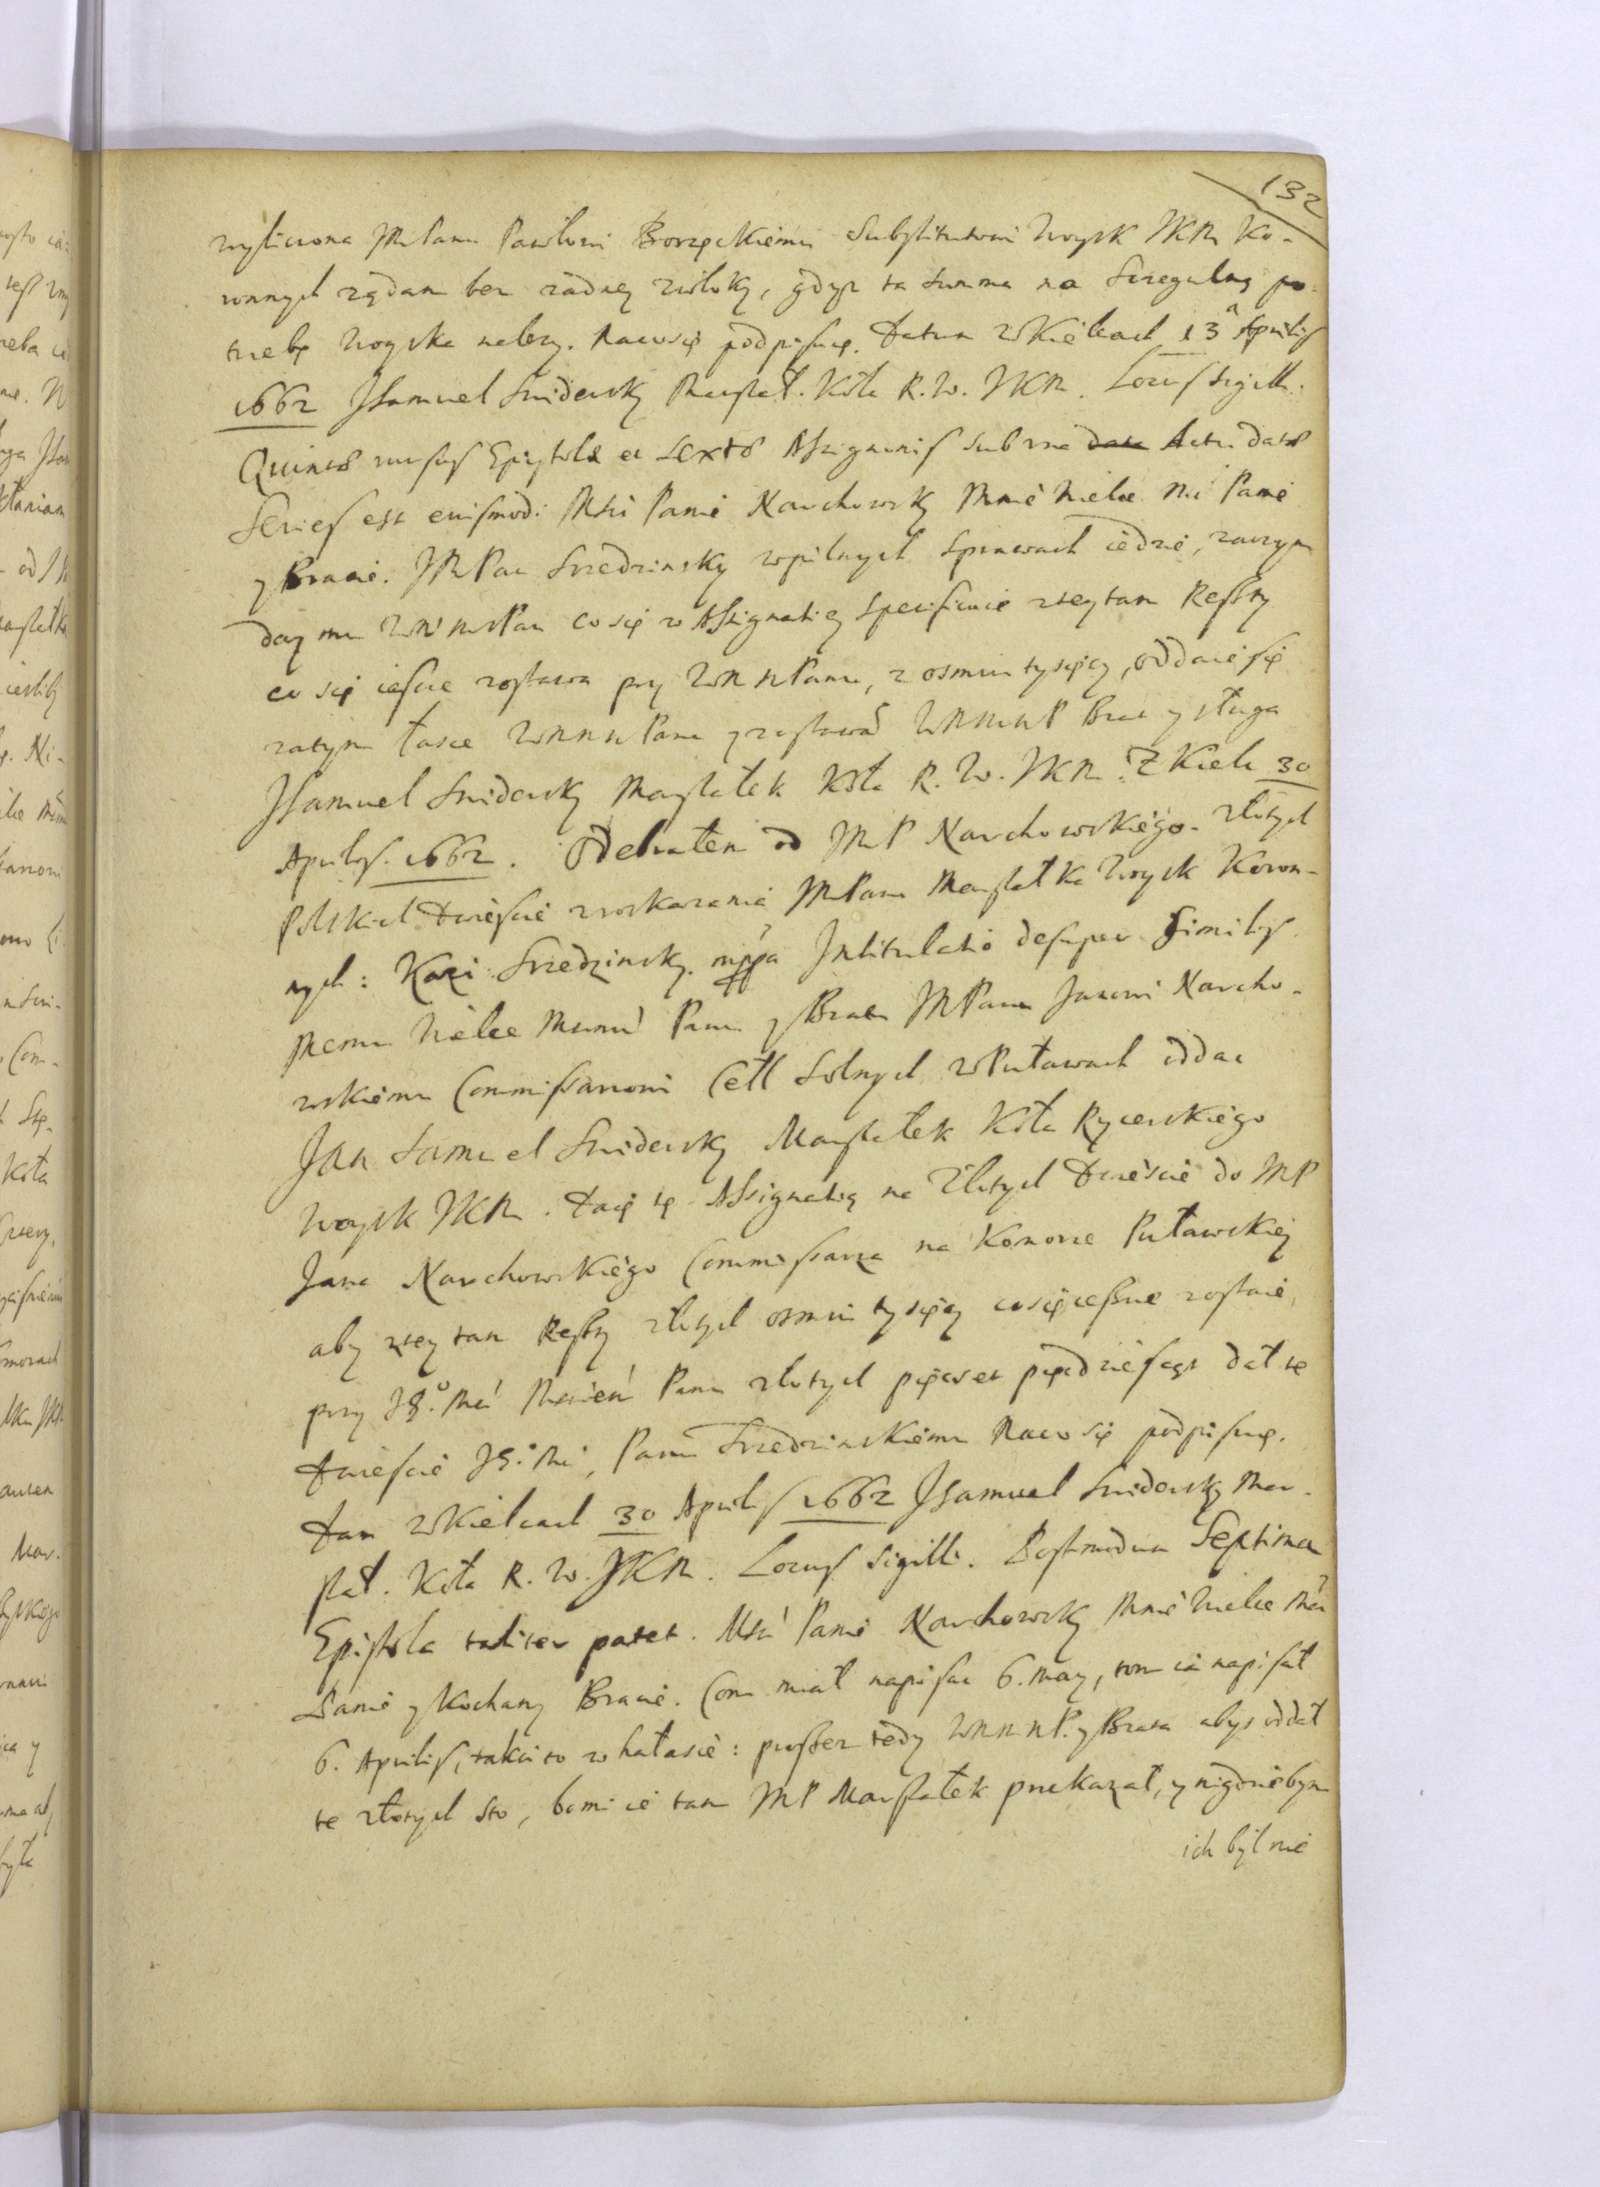 132
wyliczona JMPanu Pawłowi Borzęckiemu Substitutowi Woysk JKM Ko-
ronnych ządam bez zadney zwłoky, gdyz ta summa na Szegulną po-
trzebę Woyska nalezy. Na co się podpisuię. Datum w Kielcach 13ª Aprilis
1662 JSamuel Swiderski Marszał. Koła R. W. JKM. Locus Sigilli.
Quinto rursus Epistolae et sexto Assignationis sub una Actu dato
Series est eiusmodi Mści Panie Karchowsky Mnie Wielce Mci Panie
y Bracie. JMPan Srzedzinsky w pilnych sprawach iedzie, zaczym
day mu WMMPan co się w Assignatiey specificuie z tey tam Reszty
co się ieszcze zostawa przy WMMPanu, z osmiu tysięcy, oddaię się
zatym łasce WMMMPana y zostawam WMMMP Brat y sługa
JSamuel Swidersky Marszałek Koła R. W. JKM. Z Kielc 30
Aprilis. 1662. Odebrałem od JMP Karchowskiego. Złotych
Polskich Dwiescie z roskazania JMPana Marszałka Woysk Koron-
nych: Kazi: Srzedzinsky. mppa Intitulatio desuper Similis.
Memu Wielce Memu Panu y Bratu JMPanu Janowi Karcho-
wskiemu Commissarzowi Cełł Solnych w Puławach oddac
Jan Samuel Swidersky Marszałek Koła Rycerskiego
Woysk JKM. Daię tę Assignatią na Złotych Dwiescie do JMP
Jana Karchowskiego Commissarza na Komorze Puławskiey
aby z tey tam Reszty złotych osmiu tysięcy co się ieszcze zostaie,
przy Jgº. Mci Panu złotych pięcset pięcdziesiąt dał te
Dwiescie Jgº. Mci, Panu Srzedzinskiemu Na co się podpisuię.
Dan w Kielcach 30 Aprilis 1662 JSamuel Swidersky Mar-
szał. Koła R. W. JKM. Locus Sigilli. Postmodum Septima
Epistola taliter patet. Mści Panie Karchowsky Mnie Wielce Mci
Panie y Kochany Bracie. Com miał napisac 6. may, tom ia napisał
6. Aprilis, takci to w hałasie: proszę tedy WMMMP. y Brata abys oddał
te złotych sto, bo mi ie tam JMP Marszałek przekazał, y nigdziebym
ich był nie